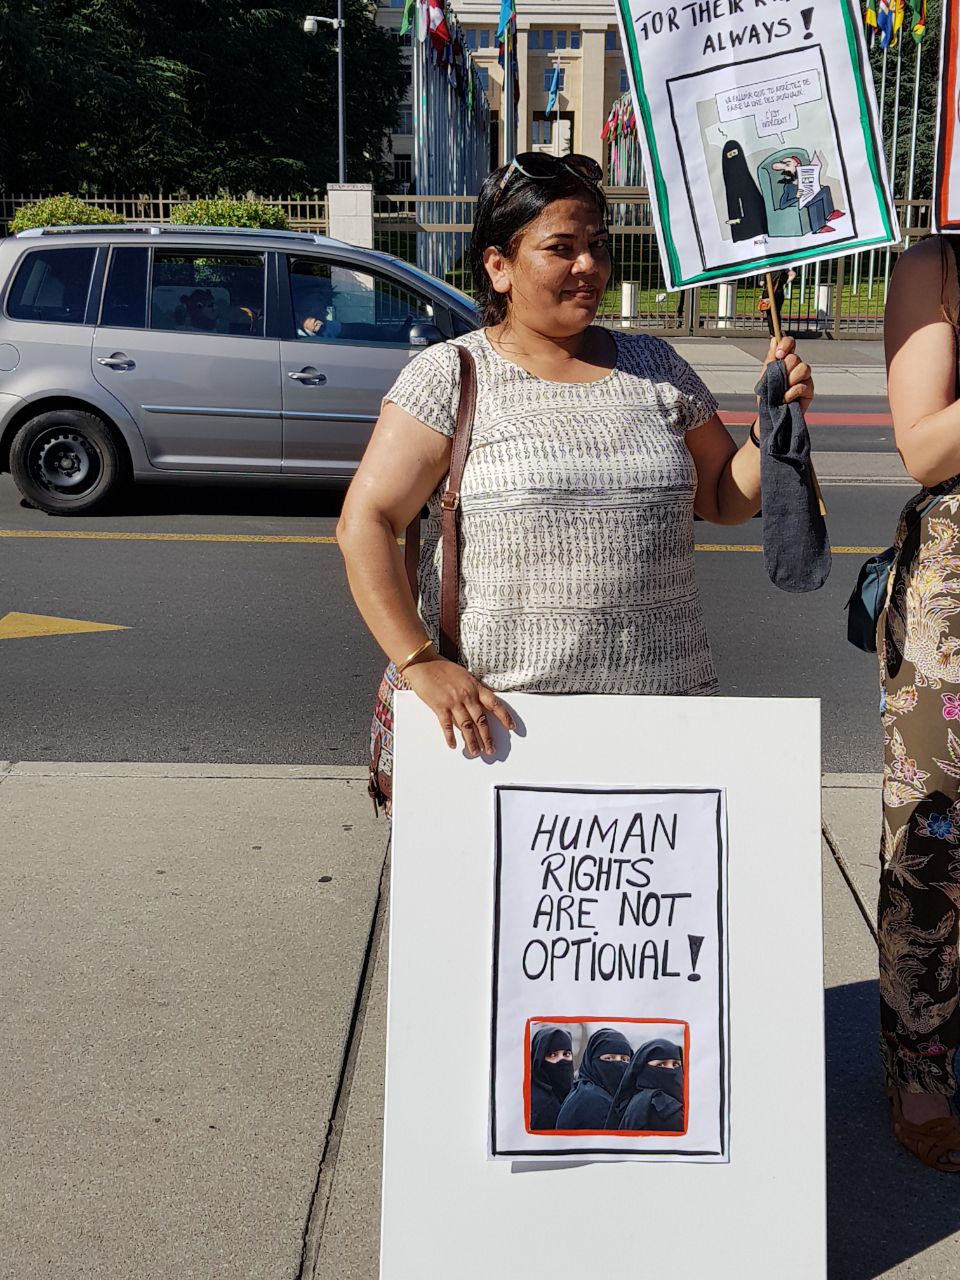 FOR THEIR
ALWAYS!
VA FALLOIR QUE TU ARRÊTES DE
FAIRE LA UNE DES JOURNAUX.
C'EST
INDÉCENT!
HUMAN
RIGHTS
ARE NOT
OPTIONAL!